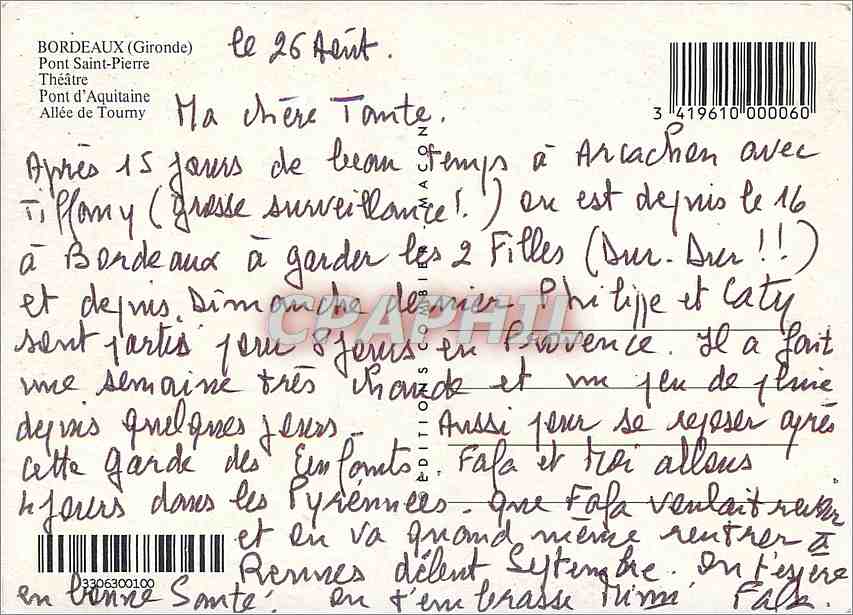 BORDEAUX (Gironde)
Pont Saint-Pierre
Théâtre
Pont d'Aquitaine
Allée de Tourny
3 419610 000060
le 26 Août.
Ma chère Tante.
Après 15 jours de beau temps à Arcachon avec
Tiffany (grosse surveillance!.) on est depuis le 16
à Bordeaux à garder les 2 Filles (Dur-Dur!!)
et depuis Dimanche dernier Philippe et Caty
sont partis pour 8 jours en Provence. Il a fait
une semaine très chaude et un peu de pluie
depuis quelques jours. Aussi pour se reposer après
cette garde des Enfants. Fafa et Moi allons
4 jours dans les Pyrénnées. que Fafa voulait revoir
et on va quand même rentrer à
Rennes début Septembre. On t'espère
en bonne Santé. on t'embrasse Mimi Fafa.
ÉDITIONS COMBIER - MACON
CPAPHIL
3306300100